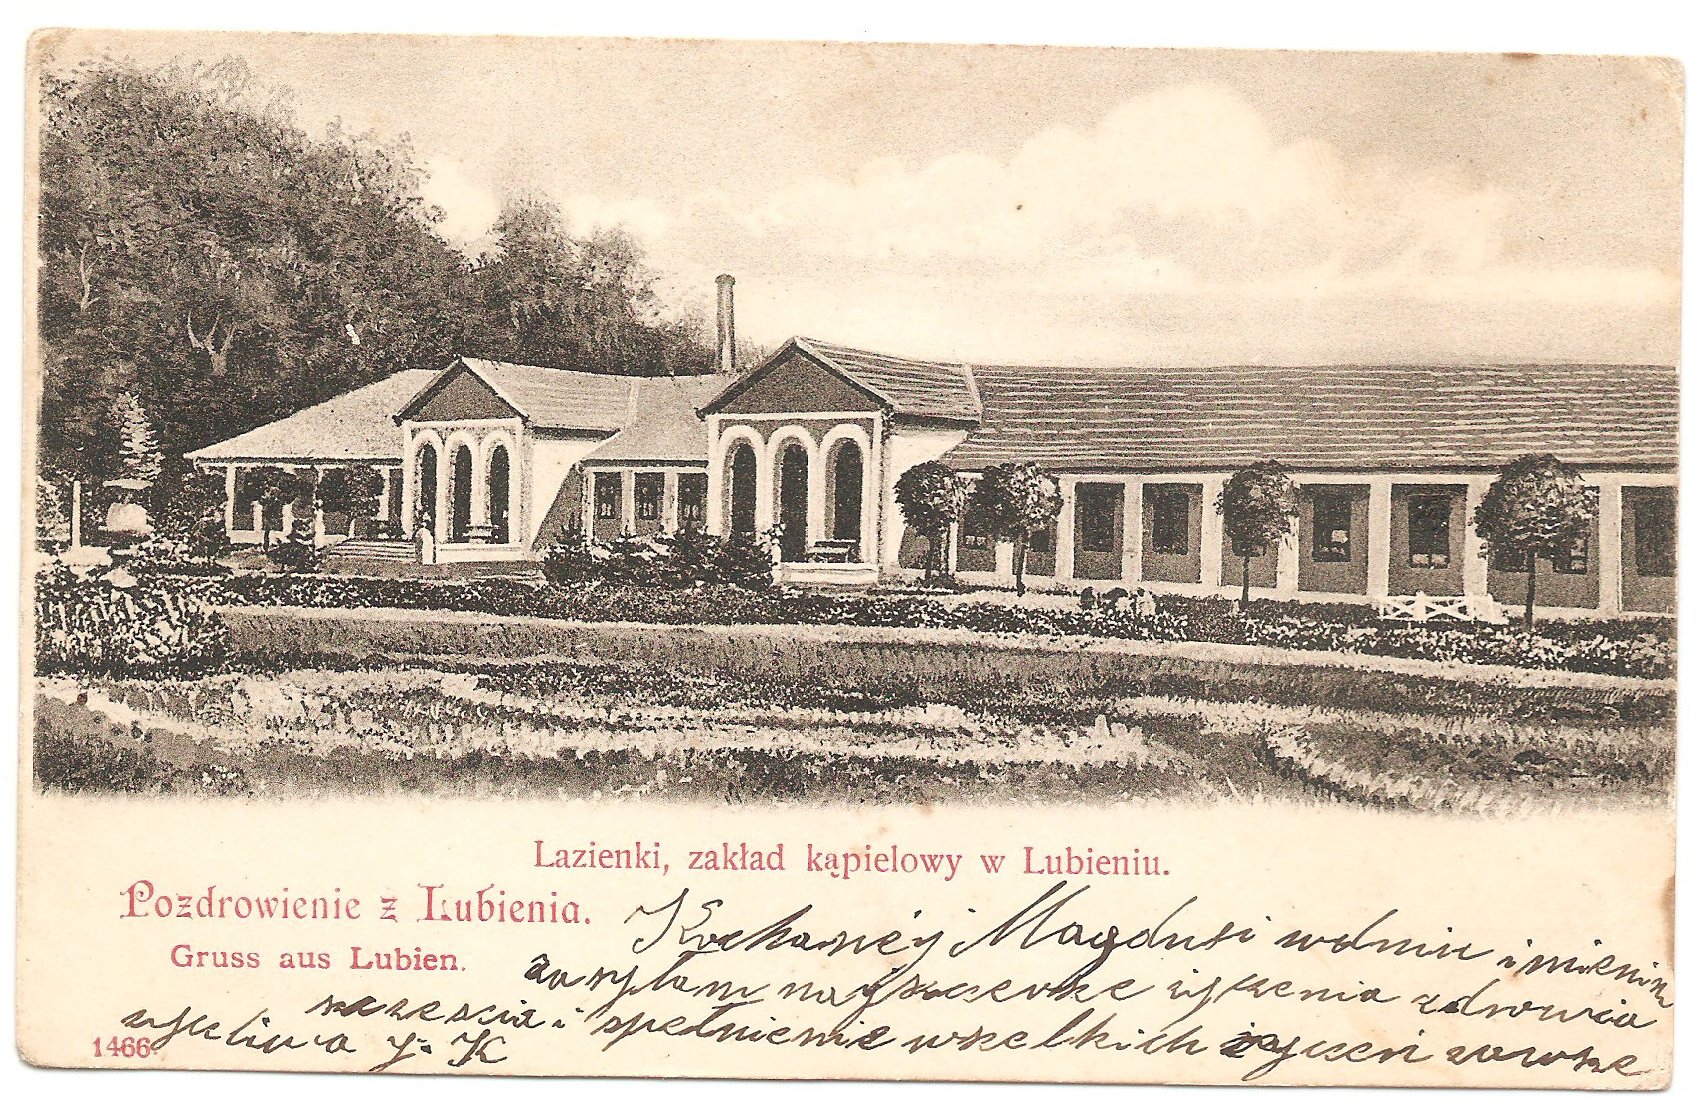 Lazienki, zakład kąpielowy w Lubieniu.
Pozdrowienie z Lubienia.
Gruss aus Lubien.
Kochanéj Magdusi w dniu imienin
zasyłam najszczerke życzenia zdrowia
szczescia i spełnienie wszelkich życzeń zawsze
życliwa J. K
1466.